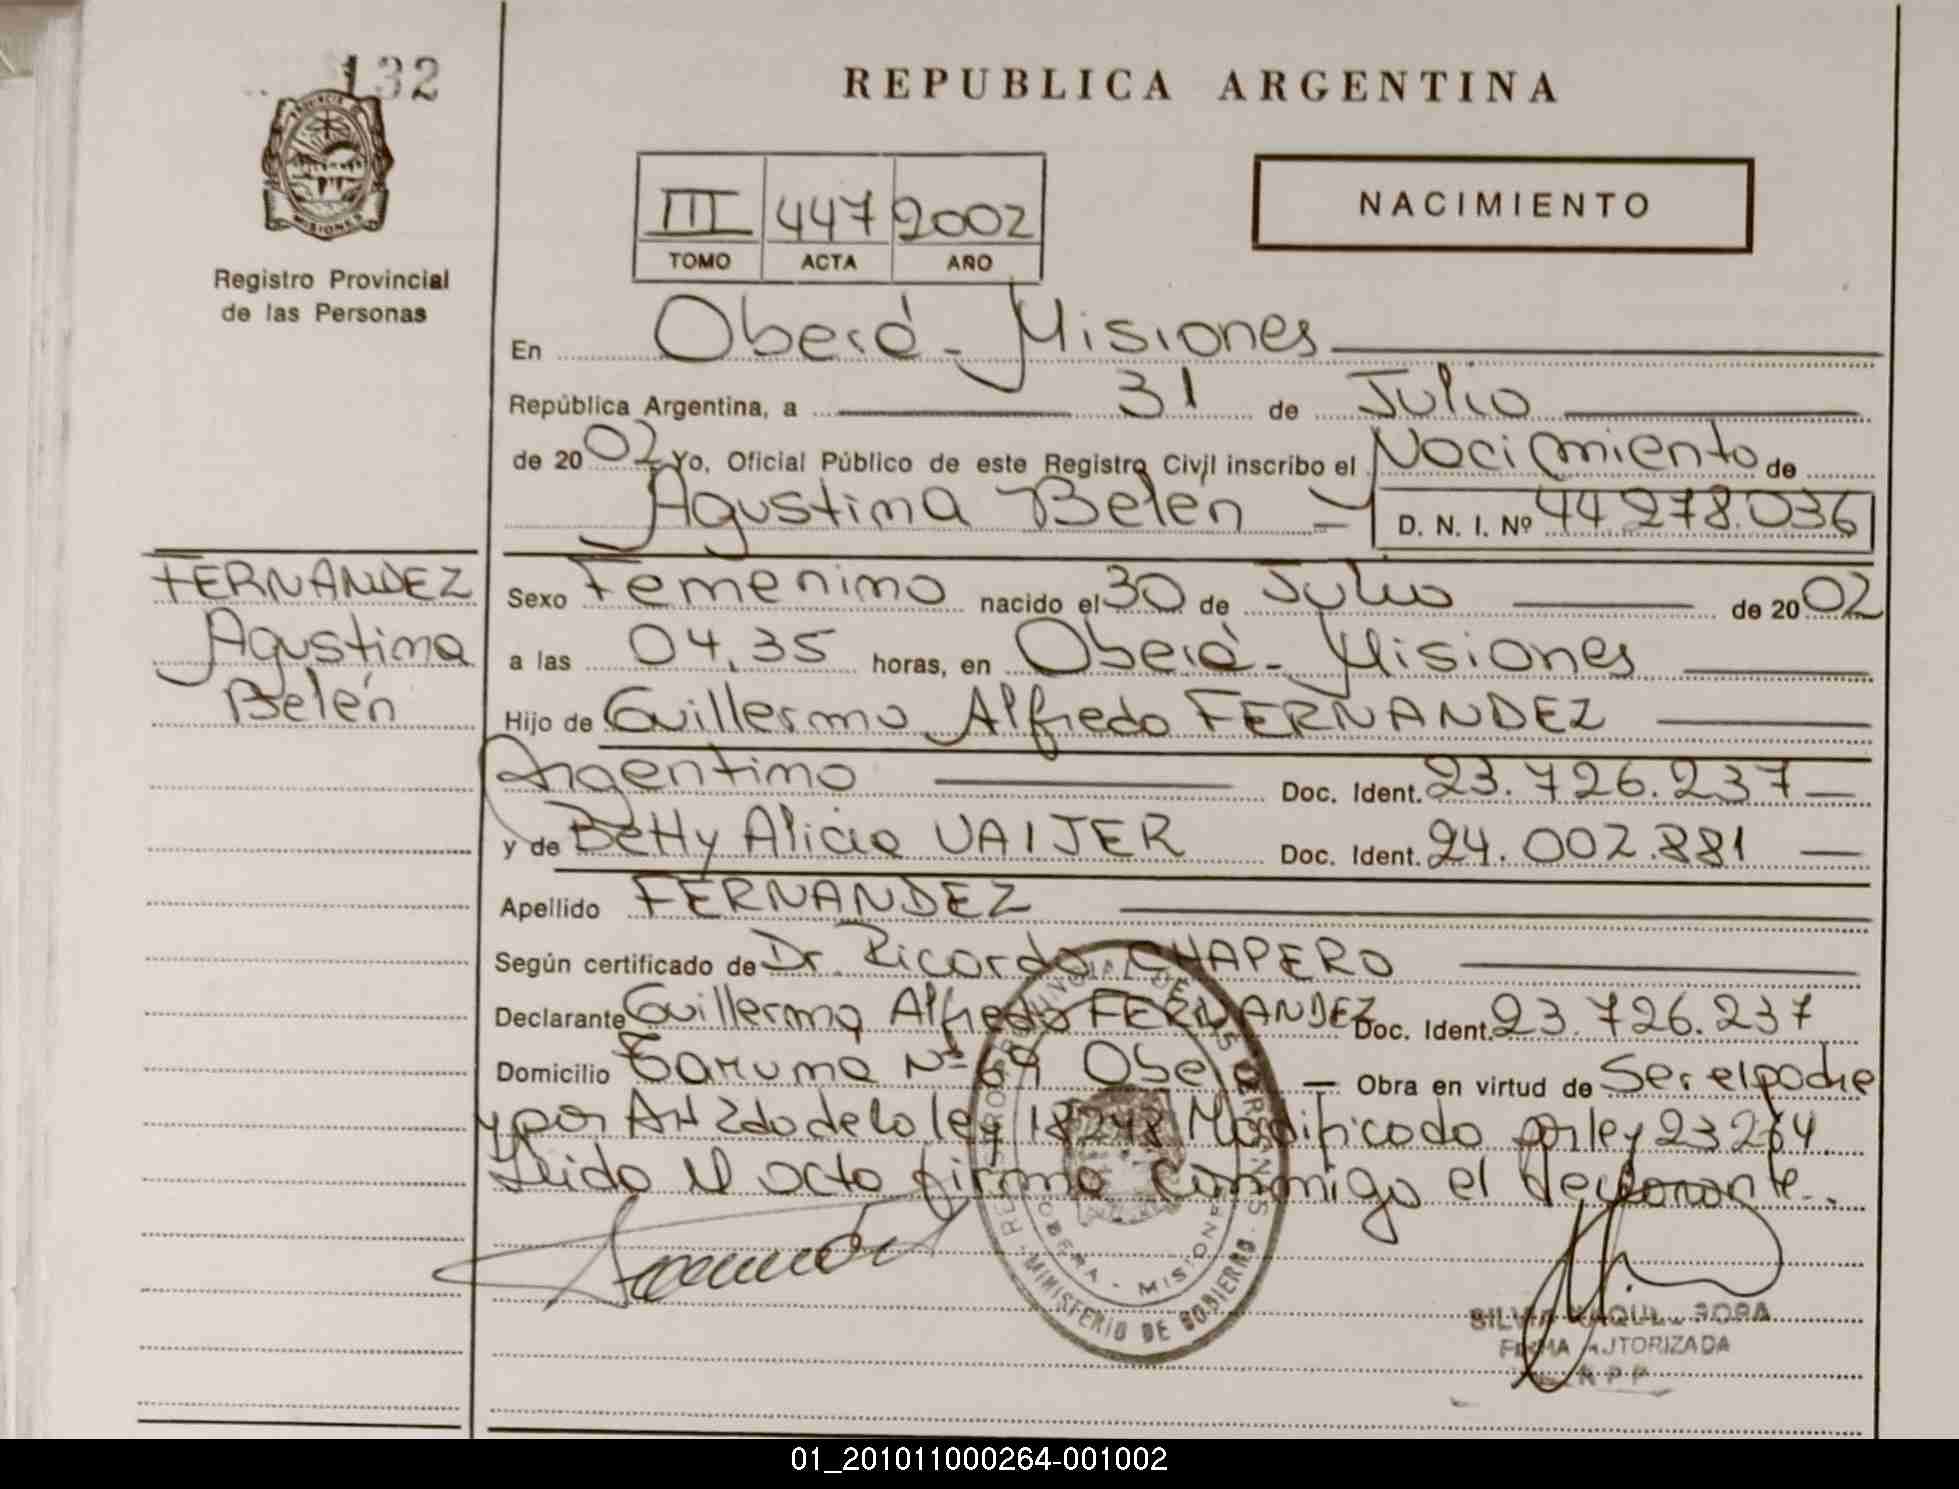 132
PROVINCIA DE
MISIONES
Registro Provincial
de las Personas
REPUBLICA ARGENTINA
III 447 2002
TOMO ACTA AÑO
NACIMIENTO
En Oberá - Misiones
República Argentina, a 31 de Julio
de 2002 Yo, Oficial Público de este Registro Civil inscribo el Nacimiento de
Agustina Belén - D. N. I. Nº 44.278.036
FERNANDEZ
Agustina
Belén
Sexo Femenino nacido el 30 de Julio de 2002
a las 04.35 horas, en Oberá - Misiones
Hijo de Guillermo Alfredo FERNANDEZ
Argentino Doc. Ident. 23.726.237 -
y de Betty Alicia VAIJER Doc. Ident. 24.002.881 -
Apellido FERNANDEZ
Según certificado de Dr. Ricardo CHAPERO
Declarante Guillermo Alfredo FERNANDEZ Doc. Ident. 23.726.237
Domicilio Taruma Nº 69 Oberá - Obra en virtud de Ser el padre
y por Art 2do de la ley 18248 Modificado por ley 23264.
Leida el acta firma conmigo el declarante.
REGISTRO PROVINCIAL DE LAS PERSONAS
OBERA - MISIONES
MINISTERIO DE GOBIERNO
SILVIA RAQUEL
FIRMA AUTORIZADA
R P P
01_201011000264-001002